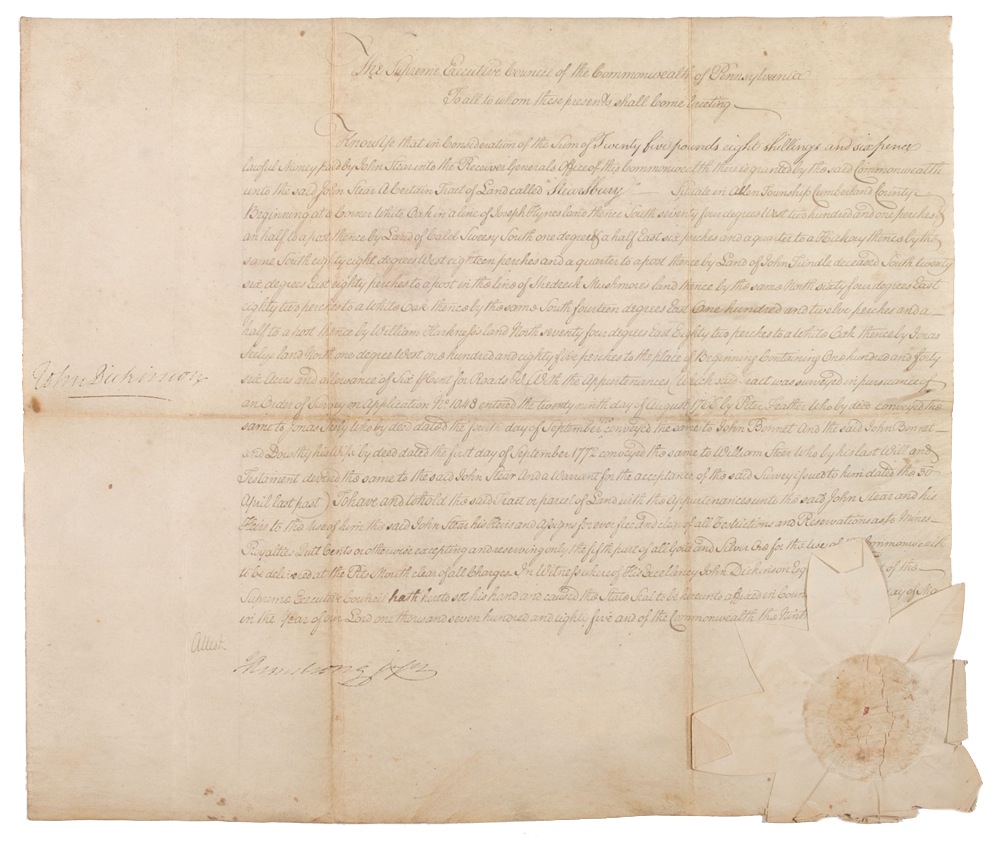 The Supreme Executive Council of the Commonwealth of Pennsylvania
To all to whom these presents shall Come Greeting
Know Ye that in Consideration of the Sum of Twenty five pounds eight shillings and six pence
lawful Money paid by John Stear into the Receiver Generals Office of this Commonwealth there is granted by the said Commonwealth
unto the said John Stear A Certain Tract of Land called "Shewsbury" Situate in Allen Township Cumberland County
Beginning at a Corner White Oak in a line of Joseph Hynes land thence South seventy four degrees West two hundred and one perches &
an half to a post thence by Land of Caleb Sweesy South one degree & a half East six perches and a quarter to a Hickory thence by the
same South eighty eight degrees West eighteen perches and a quarter to a post thence by Land of John Trindle deceased South twenty
six degrees East eighty perches to a post in the line of Shedreck Mushmores land thence by the same North sixty four degrees East
eighty two perches to a White Oak thence by the same South fourteen degrees East One hundred and twelve perches and a
half to a post thence by William Harkness's land North seventy four degrees East Eighty two perches to a White Oak thence by Jonas
Seelys land North one degree West one hundred and eighty five perches to the place of Beginning Containing One hundred and forty
six Acres and allowance of Six Cent for Roads &c With the Appurtenances Which said Tract was surveyed in pursuance of
an Order of Survey on Application No. 1048 entered the twenty ninth day of August 1766 by Peter Feather Who by deed conveyed the
same to Jonas Seely Who by deed dated the fourth day of September conveyed the same to John Bonnet And the said John Bonnet
and Dorothy his Wife by deed dated the first day of September 1772 conveyed the same to William Stear Who by his last Will and
Testament devised the same to the said John Stear And a Warrant for the acceptance of the said Survey issued to him dated the 30
April last past To have and to hold the said Tract or parcel of Land with the Appurtenances unto the said John Stear and his
Heirs to the use of him the said John Stear his Heirs and Assigns for ever free and clear of all Restrictions and Reservations as to Mines
Royalties Quit Rents or otherwise excepting and reserving only the fifth part of all Gold and Silver Ore for the use of the Commonwealth
to be delivered at the Pits Mouth clear of all Charges. In Witness whereof His Excellency John Dickinson Esq of the
Supreme Executive Council hath hereto set his hand and caused the State Seal to be hereunto affixed in Coun day of Ma
in the Year of our Lord one thousand seven hundred and eighty five and of the Commonwealth the Ninth
John Dickinson
Attest
J Armstrong jr Secy